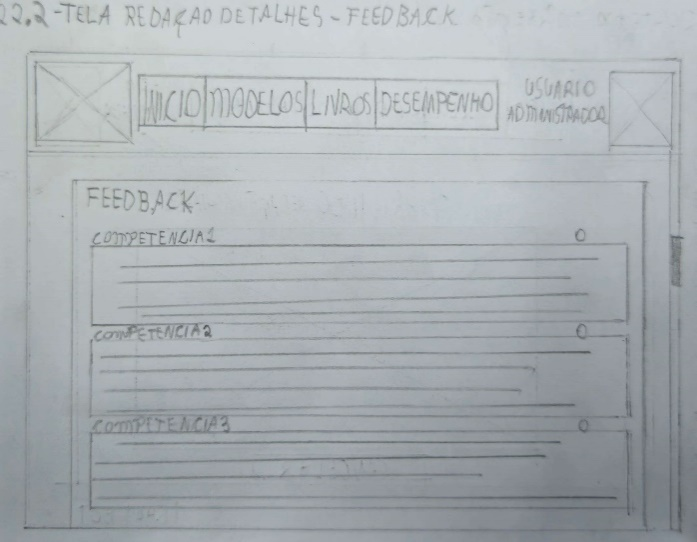 22.2-TELA REDAÇAO DETALHES-FEEDBACK
INICIO MODELOS LIVROS DESEMPENHO
USUARIO
ADMINISTRADOR
FEEDBACK
COMPETENCIA1 0
COMPETENCIA2 0
COMPETENCIA3 0